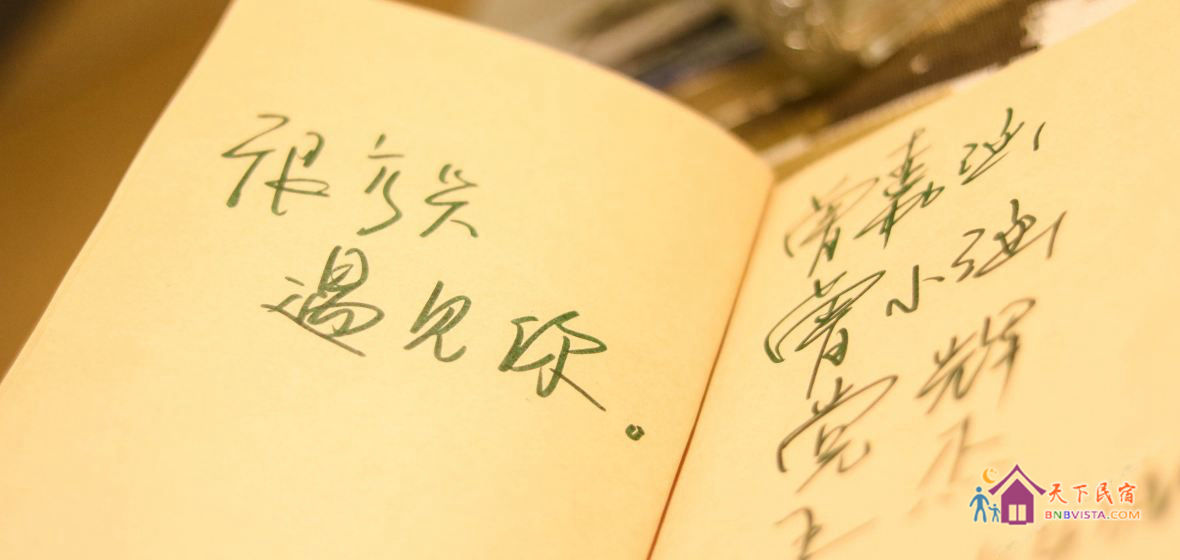 很高兴
遇见你。
曾嘉涵
曾小涵
党辉
天下民宿
BNBVISTA.COM